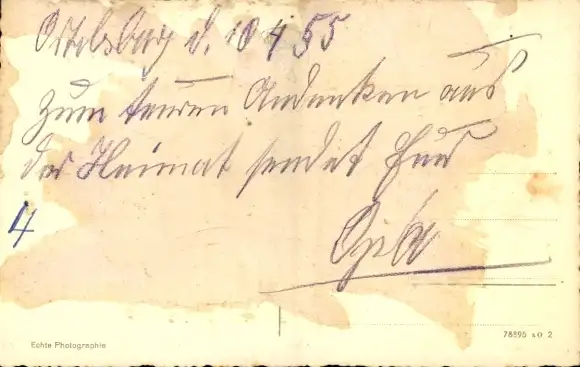 Ortelsburg d. 10 4 55
Zum teuren Andenken aus
der Heimat sendet Euch
4
Echte Photographie
78895 x0 2